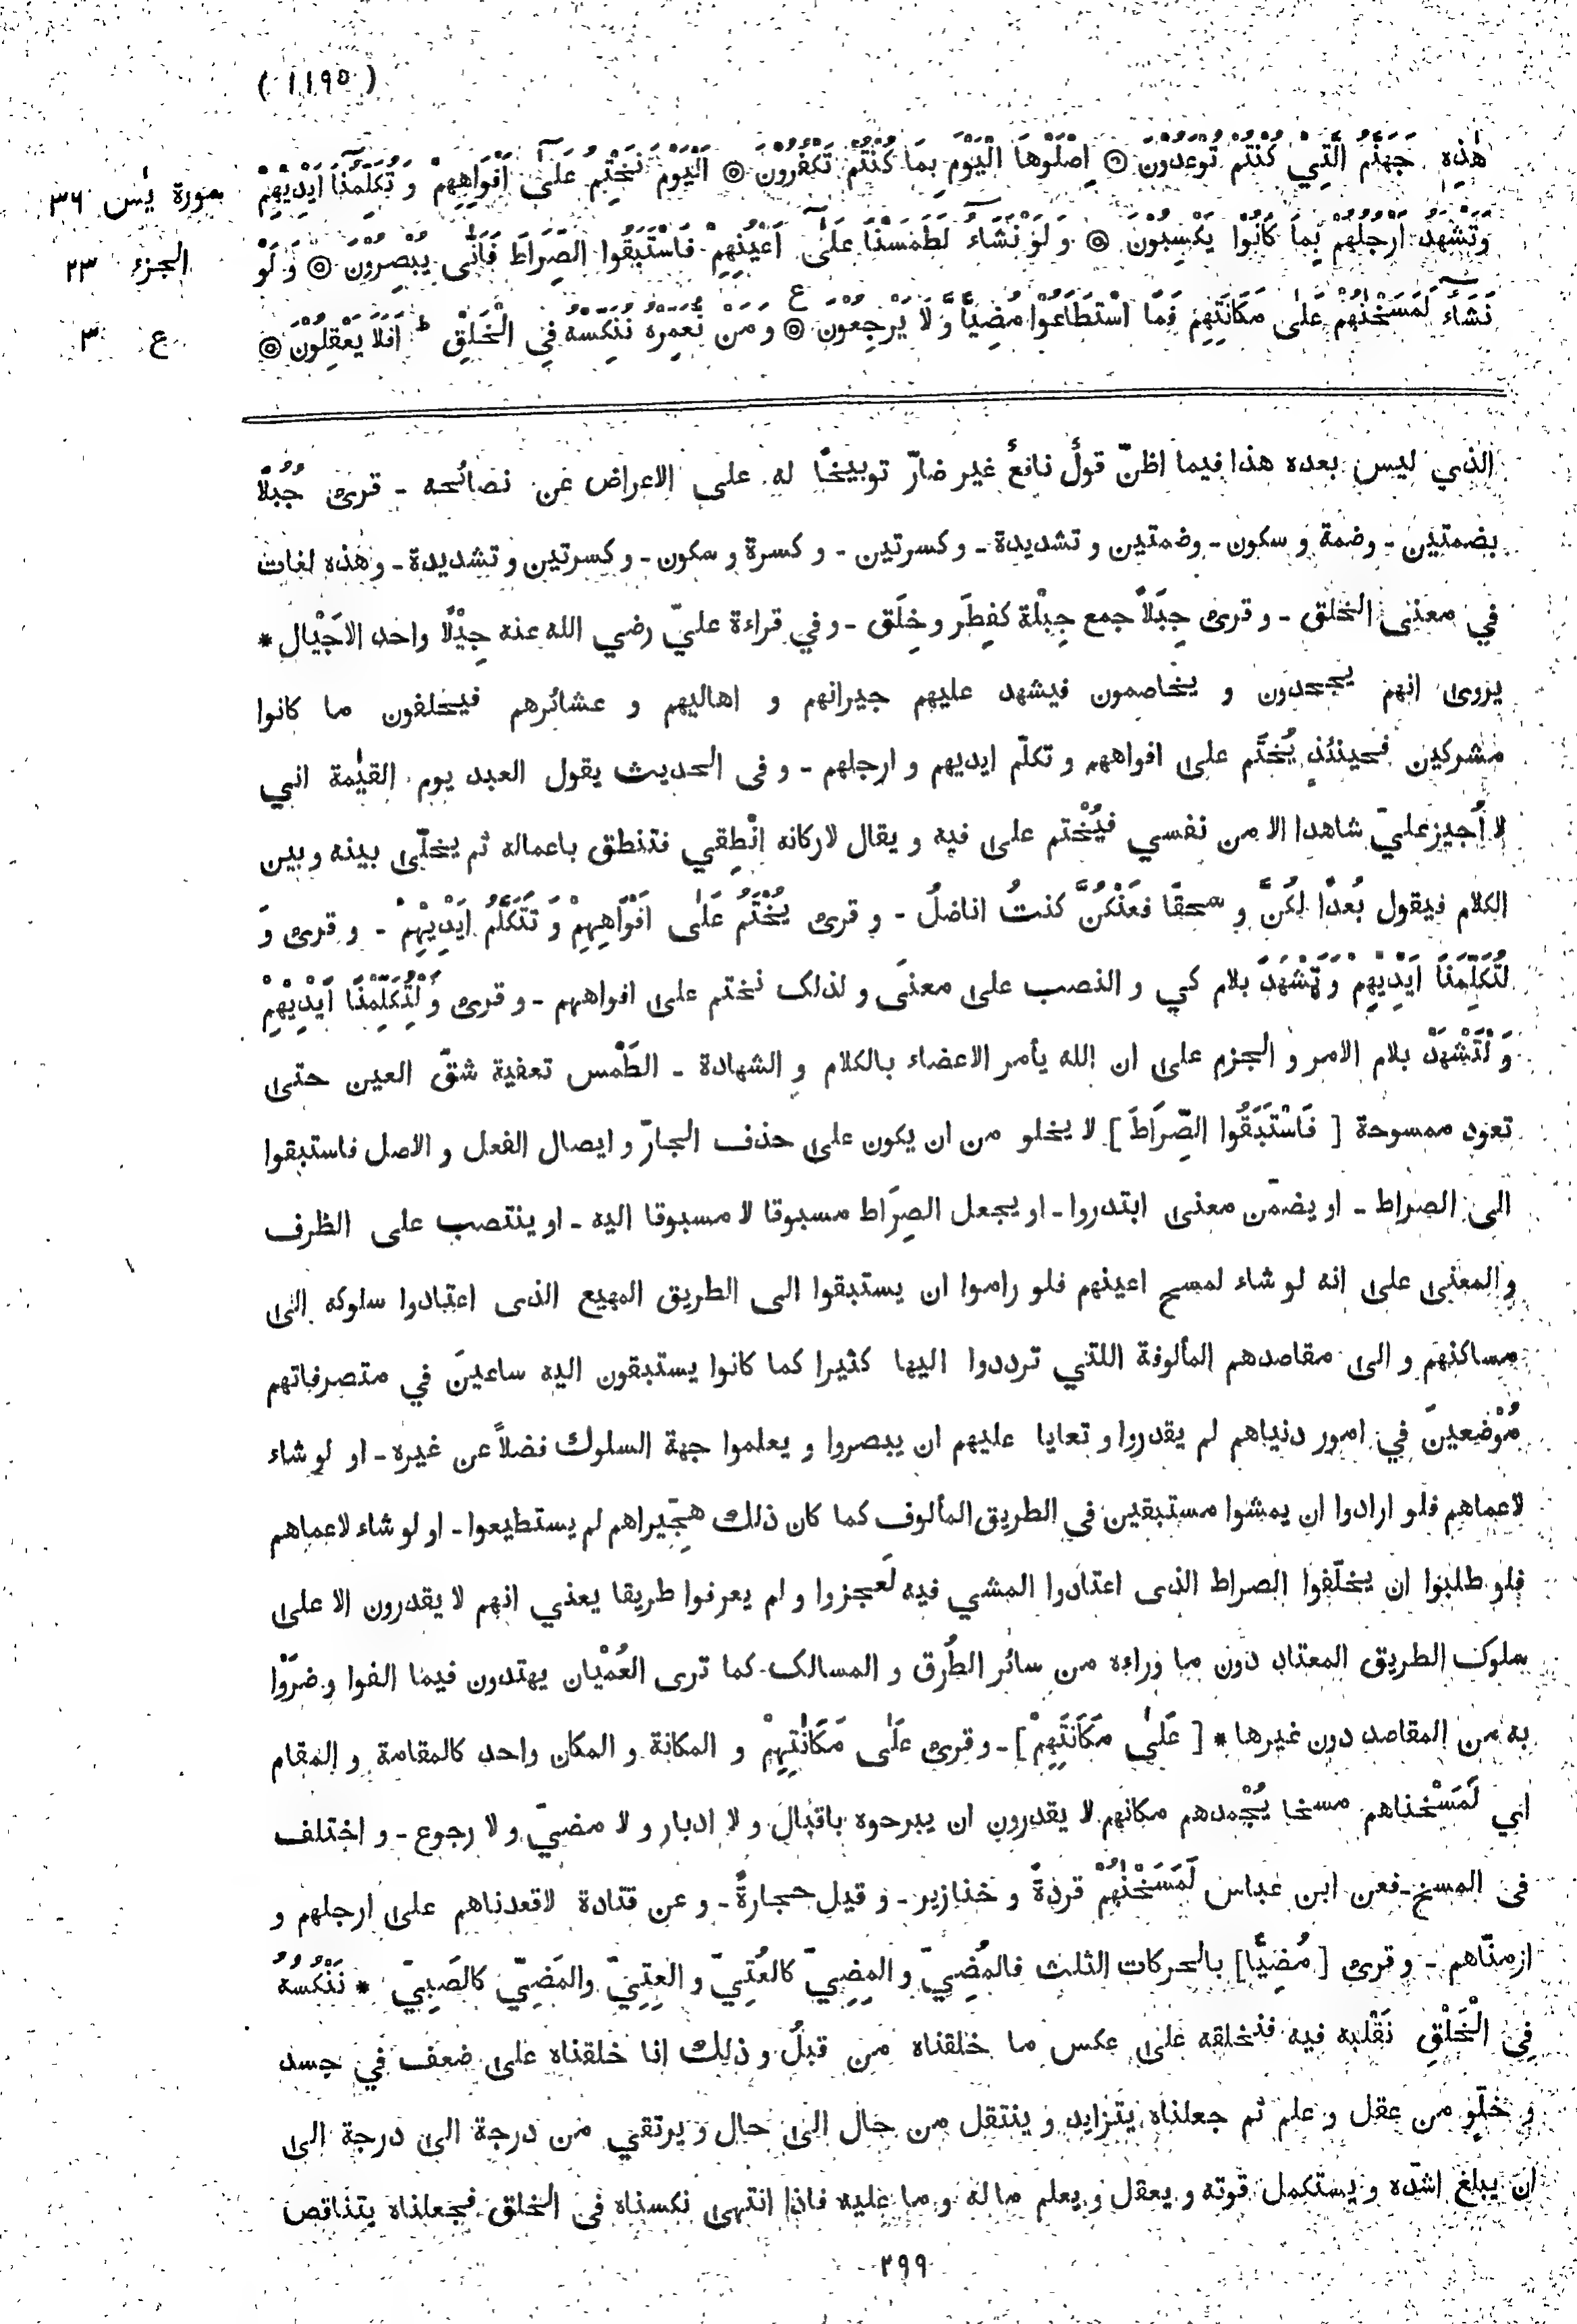 ( ١١٩٥ )
هٰذِهٖ جَهَنَّمُ الَّتِيْ كُنْتُمْ تُوْعَدُوْنَ ۞ اِصْلَوْهَا الْيَوْمَ بِمَا كُنْتُمْ تَكْفُرُوْنَ ۞ اَلْيَوْمَ نَخْتِمُ عَلٰٓى اَفْوَاهِهِمْ وَ تُكَلِّمُنَآ اَيْدِيْهِمْ
سورة يٰس ٣٦
وَتَشْهَدُ اَرْجُلُهُمْ بِمَا كَانُوْا يَكْسِبُوْنَ ۞ وَ لَوْ نَشَآءُ لَطَمَسْنَا عَلٰٓى اَعْيُنِهِمْ فَاسْتَبَقُوا الصِّرَاطَ فَاَنّٰى يُبْصِرُوْنَ ۞ وَ لَوْ
الجزء ٢٣
نَشَآءُ لَمَسَخْنٰهُمْ عَلٰى مَكَانَتِهِمْ فَمَا اسْتَطَاعُوْا مُضِيًّا وَّ لَا يَرْجِعُوْنَ ۞ ع وَ مَنْ نُّعَمِّرْهُ نُنَكِّسْهُ فِي الْخَلْقِ ط اَفَلَا يَعْقِلُوْنَ ۞
ع ٣
الذي ليس بعده هذا فيما اظنّ قولٌ نافعٌ غير ضارّ توبيخًا له على الاعراض عن نصائحه - قرئ جُبُلًا
بضمتين - وضمة و سكون - وضمتين و تشديدة - و كسرتين - و كسرة و سكون - و كسرتين و تشديدة - و هذه لغات
في معنى الخلق - و قرئ جِبَلًا جمع جِبْلة كفِطَر و خِلَق - و في قراءة عليّ رضي الله عنه جِيْلًا واحد الاجْيال *
يروى انهم يجحدون و يخاصمون فيشهد عليهم جيرانهم و اهاليهم و عشائرهم فيحلفون ما كانوا
مشركين فحينئذٍ يُختَم على افواههم و تكلّم ايديهم و ارجلهم - و في الحديث يقول العبد يوم القيٰمة اني
لا اُجيز عليّ شاهدا الا من نفسي فيُخْتم على فيه و يقال لاركانه انْطِقي فتنطق باعماله ثم يخلّى بينه و بين
الكلام فيقول بُعدًا لكُنَّ و سحقًا فعَنْكُنَّ كنتُ اناضلُ - و قرئ يُخْتَمُ عَلٰى اَفْوَاهِهِمْ وَ تَتَكَلَّمُ اَيْدِيْهِمْ - و قرئ وَ
لِتُكَلِّمَنَا اَيْدِيْهِمْ وَ تَشْهَدَ بلام كي و النصب على معنى و لذلك نختم على افواههم - و قرئ وَ لْتُكَلِّمْنَا اَيْدِيْهِمْ
وَ لْتَشْهَدْ بلام الامر و الجزم على ان الله يأمر الاعضاء بالكلام و الشهادة - الطَمْس تعفية شقّ العين حتى
تعود ممسوحة [ فَاسْتَبَقُوا الصِّرَاطَ ] لا يخلو من ان يكون على حذف الجارّ و ايصال الفعل و الاصل فاستبقوا
الى الصراط - او يضمّن معنى ابتدروا - او يجعل الصِرَاط مسبوقا لا مسبوقا اليه - او ينتصب على الظرف
و المعنى على انه لو شاء لمسح اعينهم فلو راموا ان يستبقوا الى الطريق المهيع الذى اعتادوا سلوكه الى
مساكنهم و الى مقاصدهم المألوفة اللتي ترددوا اليها كثيرا كما كانوا يستبقون اليه ساعينَ في متصرفاتهم
مُوْضِعينَ في امور دنياهم لم يقدروا و تعايا عليهم ان يبصروا و يعلموا جهة السلوك فضلاً عن غيره - او لو شاء
لاعماهم فلو ارادوا ان يمشوا مستبقين في الطريق المألوف كما كان ذلك هِجّيراهم لم يستطيعوا - او لو شاء لاعماهم
فلو طلبوا ان يخلّفوا الصراط الذى اعتادوا المشي فيه لَعجزوا و لم يعرفوا طريقا يعني انهم لا يقدرون الا على
سلوك الطريق المعتاد دون ما وراءه من سائر الطُرق و المسالك كما ترى العُمْيان يهتدون فيما الفوا و ضرَوْا
به من المقاصد دون غيرها * [ عَلٰى مَكَانَتِهِمْ ] - و قرئ عَلٰى مَكَانٰتِهِمْ و المكانة و المكان واحد كالمقامة و المقام
اي لَمَسَخْناهم مسخا يُجْمدهم مكانهم لا يقدرون ان يبرحوه باقبال و لا ادبار و لا مضيّ و لا رجوع - و اختلف
فى المسخ - فعن ابن عباس لَمَسَخْنٰهُمْ قردةً و خنازير - و قيل حجارةً - و عن قتادة لاقعدناهم على ارجلهم و
ازمنّاهم - و قرئ [ مُضِيًّا ] بالحركات الثلث فالمُضِيّ و المِضِيّ كالعُتِيّ و العِتِيّ والمَضِيّ كالصَبِيّ * نَنْكُسْهُ
فِي الْخَلْقِ نَقْلبه فيه فنخلقه على عكس ما خلقناه من قبلُ و ذلك انا خلقناه على ضعف في جسد
و خُلّوٍ من عقل و علم ثم جعلناه يتزايد و ينتقل من حال الى حال و يرتقي من درجة الى درجة الى
ان يبلغ اشدّه و يستكمل قوته و يعقل و يعلم ما له و ما عليه فاذا انتهى نكسناه فى الخلق فجعلناه يتناقص
٢٩٩